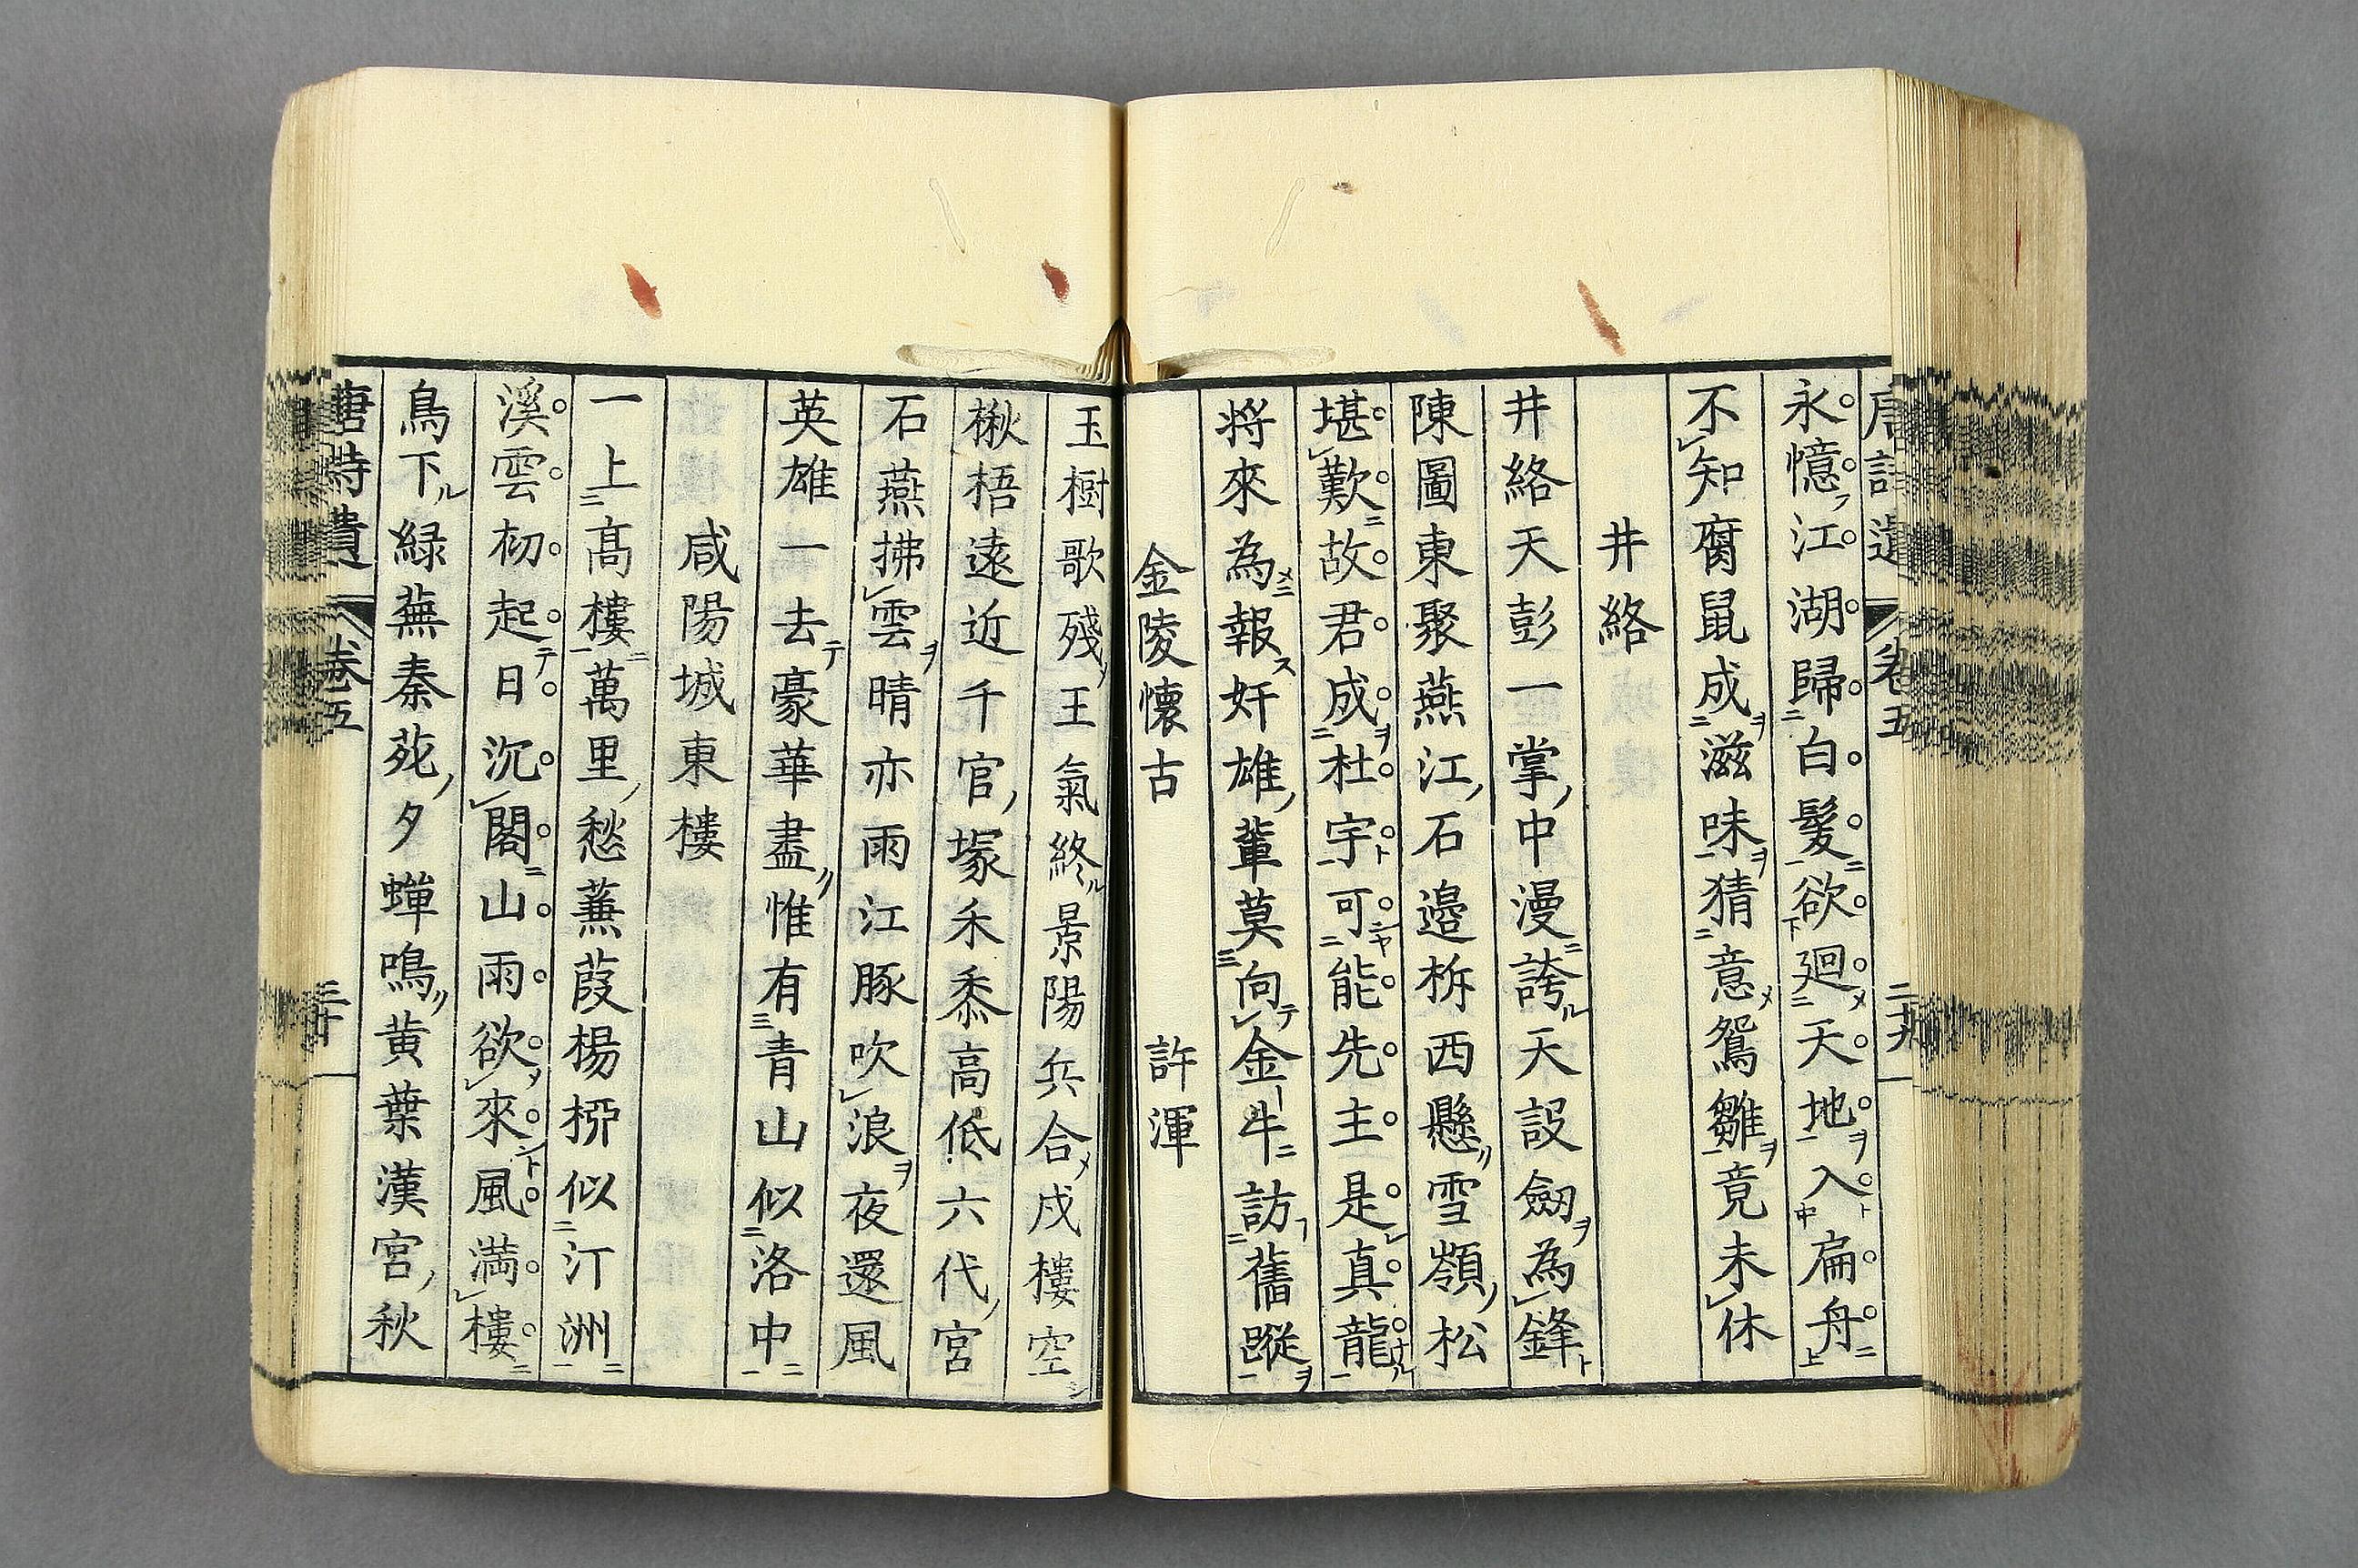 永憶江湖歸白髮欲廻天地入扁舟
不知腐鼠成滋味猜意鴛雛竟未休
井絡
井絡天彭一掌中漫誇天設劒為鋒
陳圖東聚燕江石邊柝西懸雪嶺松
堪歎故君成杜宇可能先主是真龍
将來為報奸雄輩莫向金牛訪舊蹤
金陵懷古 許渾
玉樹歌殘王氣終景陽兵合戍樓空
楸梧遠近千官塚禾黍高低六代宮
石燕拂雲晴亦雨江豚吹浪夜還風
英雄一去豪華盡惟有青山似洛中
咸陽城東樓
一上髙樓萬里愁蒹葭楊桺似汀洲
溪雲初起日沉閣山雨欲來風満樓
鳥下緑蕪秦苑夕蟬鳴黄葉漢宮秋
卷五
三十